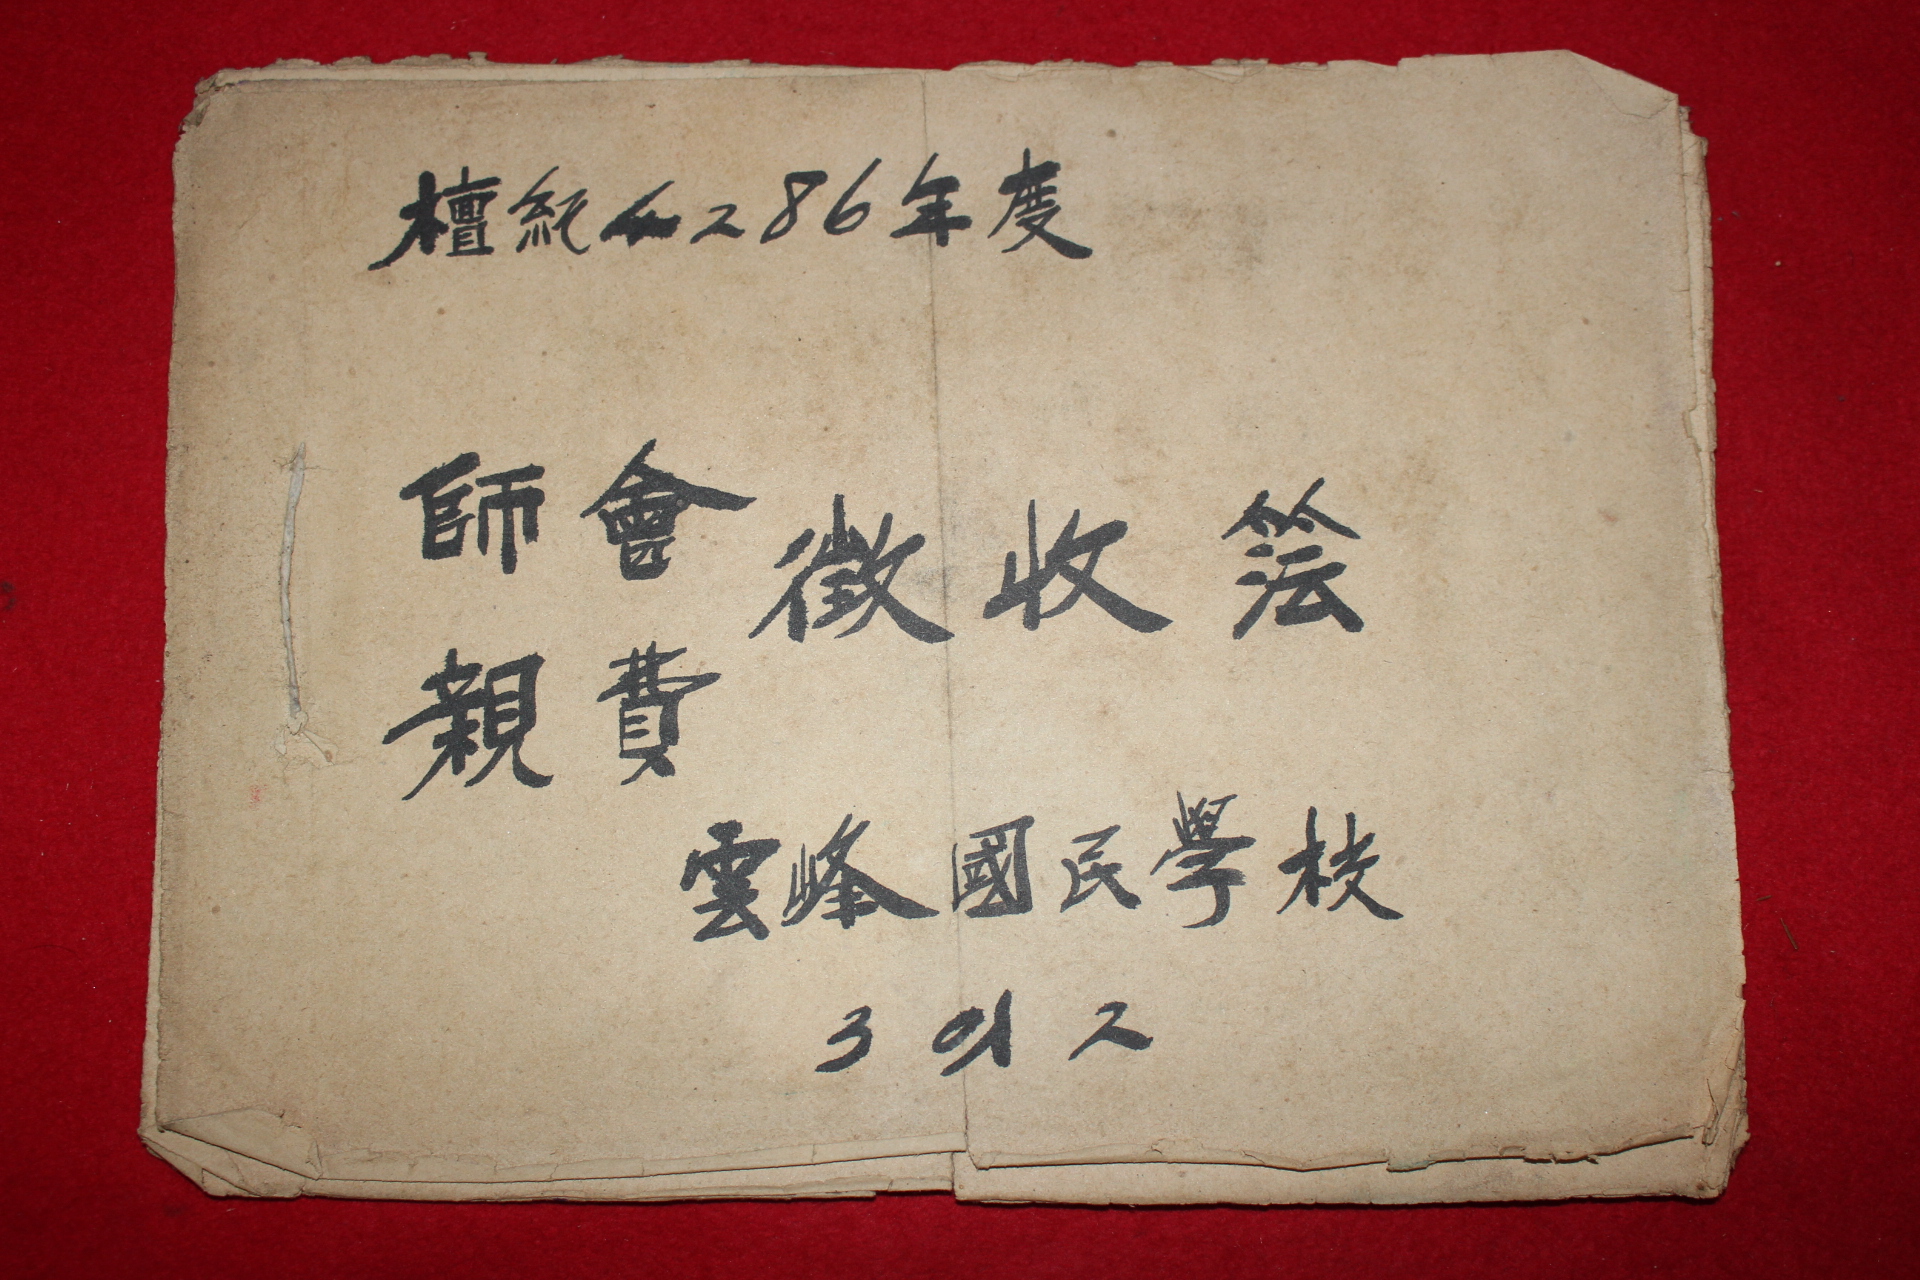 檀紀4286年度
師親會費徵收簿
雲峰國民學校
3의2